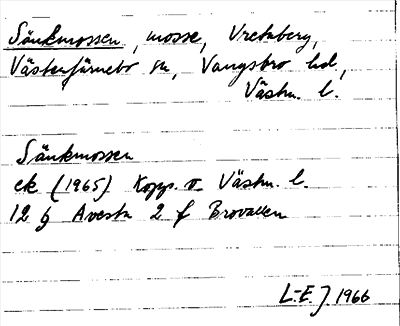 Sänkmossen, mosse, Vretaberg,
Västerfärnebo sn, Vangsbro hd,
Västm. l.
Sänkmossen
ek (1965) Kopp. o. Västm. l.
12 g Avesta 2 f Brovallen
L-E. J. 1966